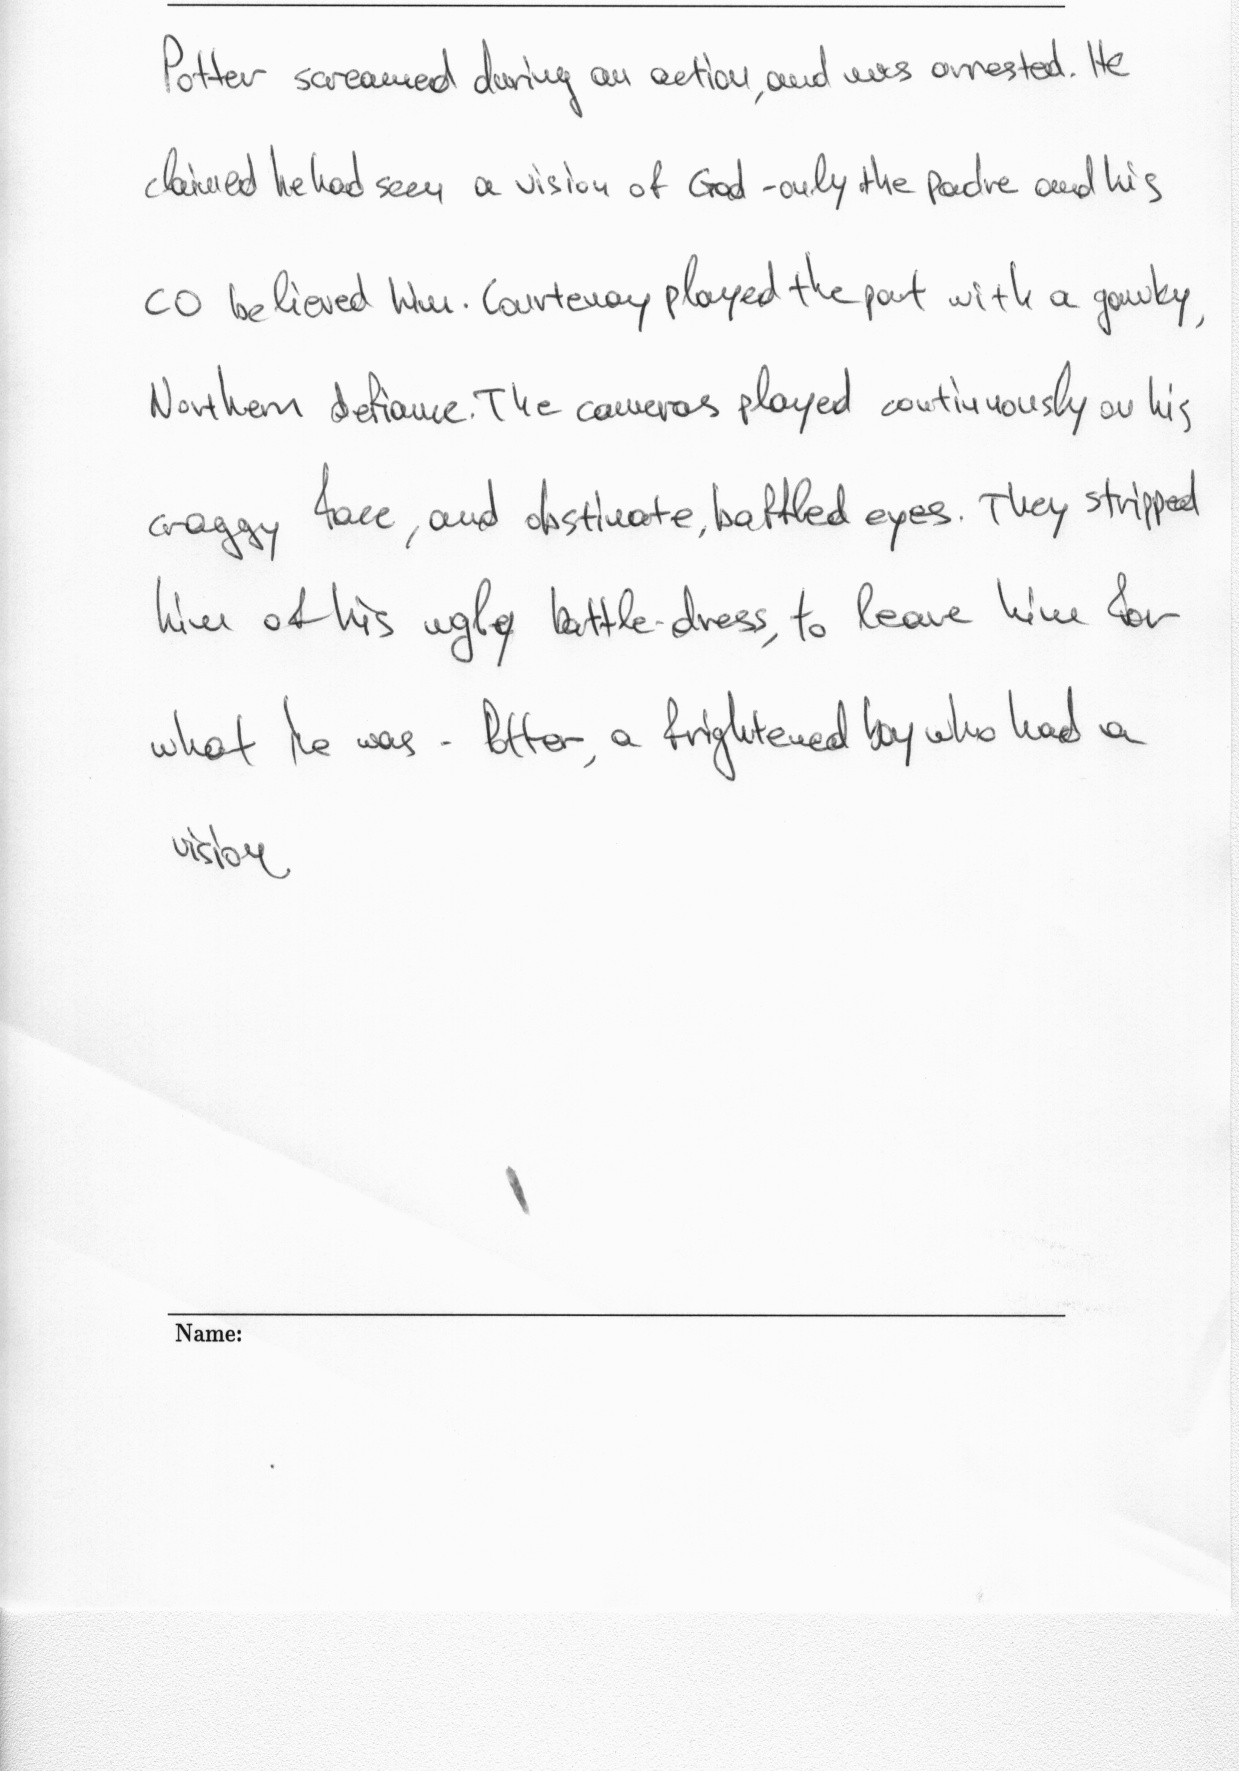 Potter screamed during an action, and was arrested. He
claimed he had seen a vision of God - only the padre and his
CO believed him. Courtenay played the part with a gawky,
Northern defiance. The cameras played continuously on his
craggy face, and obstinate, baffled eyes. They stripped
him of his ugly battle-dress, to leave him for
what he was - Potter, a frightened boy who had a
vision
Name: